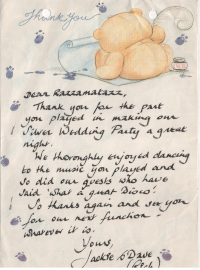 Thank You
Dear Razzamatazz,
Thank you for the part
you played in making our
Silver Wedding Party a great
night.
We thoroughly enjoyed dancing
to the music you played and
so did our guests who have
said 'what a great Disco'.
So thanks again and see you
for our next function -
whatever it is.
Yours,
Jackie & Dave